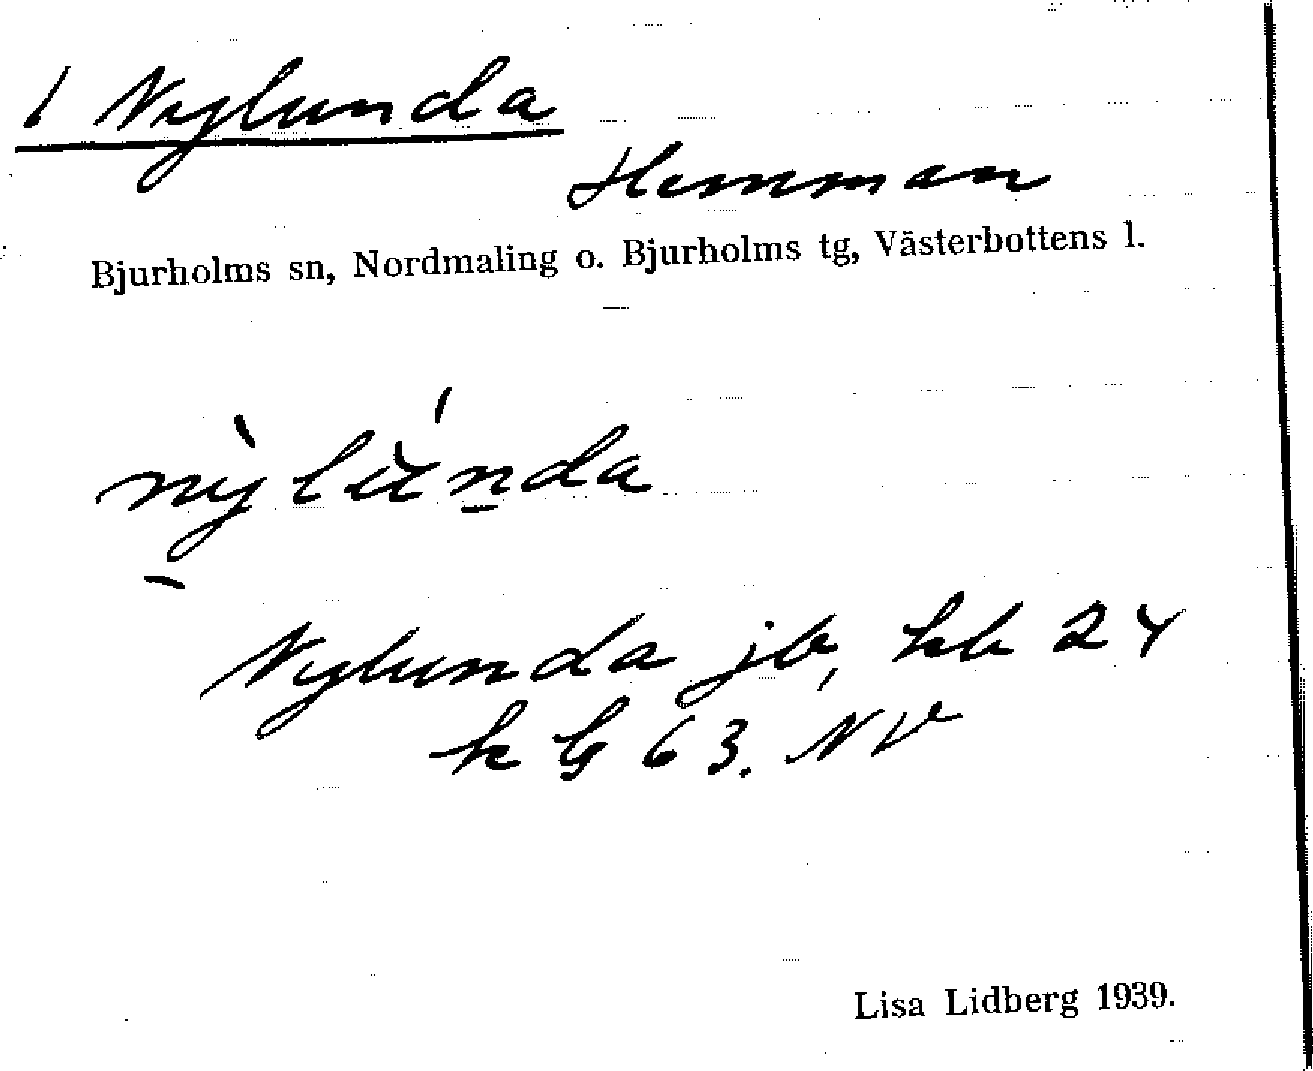 1 Nylunda
Hemman
Bjurholms sn, Nordmaling o. Bjurholms tg, Västerbottens l.
nỳlúnda
Nylunda jb, hb 24
k G 63. NV
Lisa Lidberg 1939.